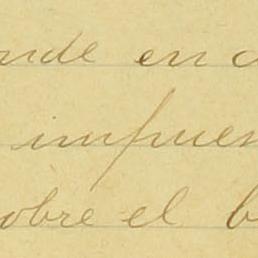 nde en
impues
obre el b